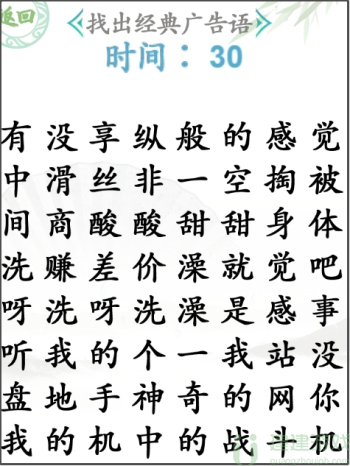 返回
找出经典广告语
时间：30
有没享纵般的感觉
中滑丝非一空掏被
间商酸酸甜甜身体
洗赚差价澡就觉吧
呀洗呀洗澡是感事
听我的个一我站没
盘地手神奇的网你
我的机中的战斗机